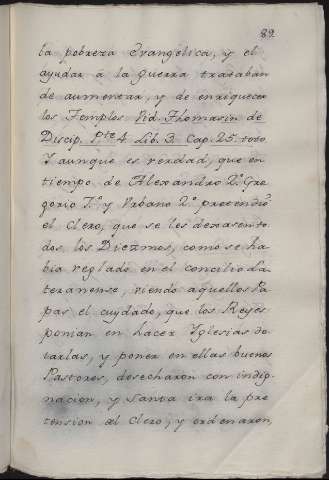 82
la pobreza Evangelica, y el
ayudar à la Guerra trataban
de aumentar, y de enriquecer
los Templos Vid. Thomasin de
Discip. Pte 4 Lib. 3. Cap. 25. toto
Y aunque es verdad, que en
tiempo de Alexandro 2º Gre
gorio 7º y Urbano 2º pretendió
el Clero, que se les dexasen to
dos los Diezmos, como se ha
bia reglado en el concilio La
teranense, viendo aquellos Pa
pas el cuydado, que los Reyes
ponian en hacer Yglesias do
tarlas, y poner en ellas buenos
Pastores, desecharon con indig
nacion, y santa ira la pre
tension del Clero, y ordenaron,